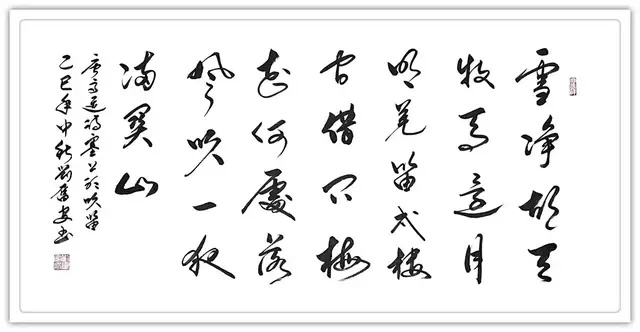 雪净胡天
牧马還月
明羌笛戍楼
间借问梅
花何處落
风吹一夜
满关山
唐高适诗塞上听吹笛
乙巳年中秋劉书